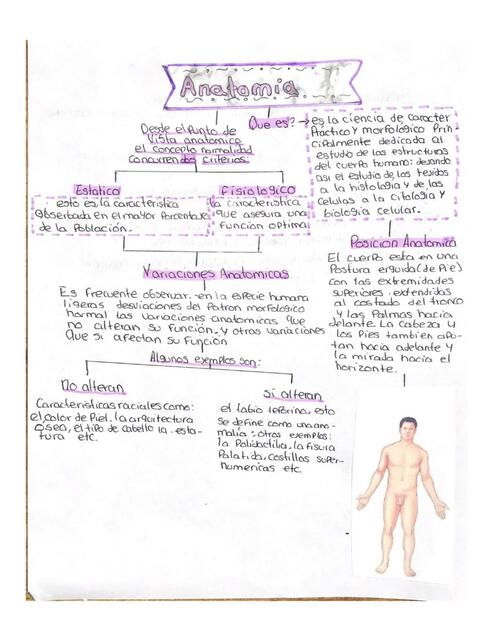 Anatomia
Que es?
es la ciencia de caracter
Practico y morfológico Prin-
cipalmente dedicada al
estudio de las estructuras
del cuerpo humano; dejando
asi el estudio de los tejidos
a la histología y de las
celulas a la citología y
biología celular.
Desde el Punto de
vista anatomico
el concepto normalidad
concurren dos criterios:
Estatico
esto es la caracteristica
observada en el mayor Porcentaje
de la Población.
Fisiologico
la caracteristica
que asegura una
función optima
Variaciones Anatomicas
Es frecuente observar en la especie humana
ligeras desviaciones del Patron morfologico
normal las variaciones anatomicas que
no alteran su función y otras variaciones
que si afectan su función
Algunos exemplos son:
No alteran
Características raciales como:
el color de Piel, la arquitectura
osea, el tipo de cabello la esta-
tura etc.
Si alteran
el labio leporino, esto
se define como una ano-
malia: otros exemplos:
la Polidactilia, la fisura
Palatida, costillas super-
numericas etc.
Posicion Anatomica
El cuerpo esta en una
Postura erguida (de Pie)
con las extremidades
superiores extendidas
al costado del tronco
y las Palmas hacia
delante. La cabeza y
los Pies tambien apu-
tan hacia adelante y
la mirada hacia el
horizonte.